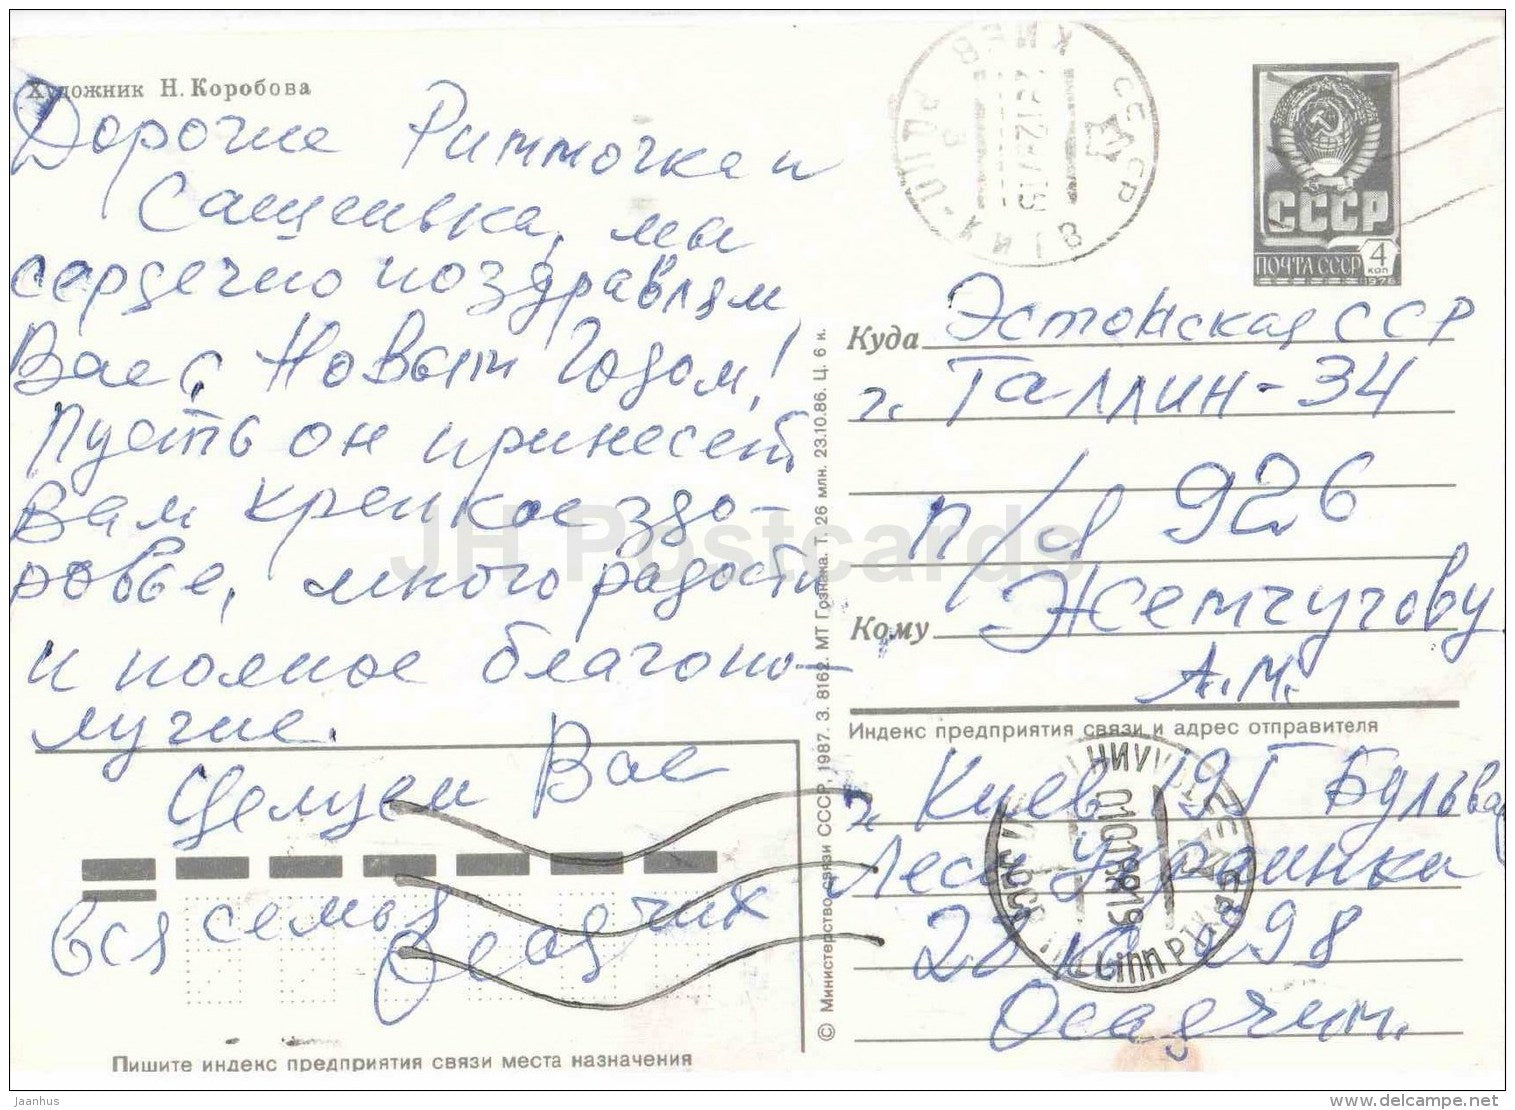 Художник Н. Коробова
Дорогие Риммочка и
Сашенька, мы
сердечно поздравляем
Вас с Новым Годом!
Пусть он принесет
Вам крепкое здо-
ровье, много радости
и полное благопо-
лучие.
Целуем Вас
вся семья Осадчих
Пишите индекс предприятия связи места назначения
© Министерство связи СССР, 1987. З. 8162. МТ Гознака. Т. 26 млн. 23.10.86. Ц. 6 к.
СССР
ПОЧТА СССР 4 коп
1976
Куда Эстонская ССР
г. Таллин-34
п/я 926
Кому Жемчугову
А.М.
Индекс предприятия связи и адрес отправителя
г. Киев 195 Бульвар
Леси Украинки
28 кв 298
Осадчим.
JH Postcards
Jaanhus
www.delcampe.net